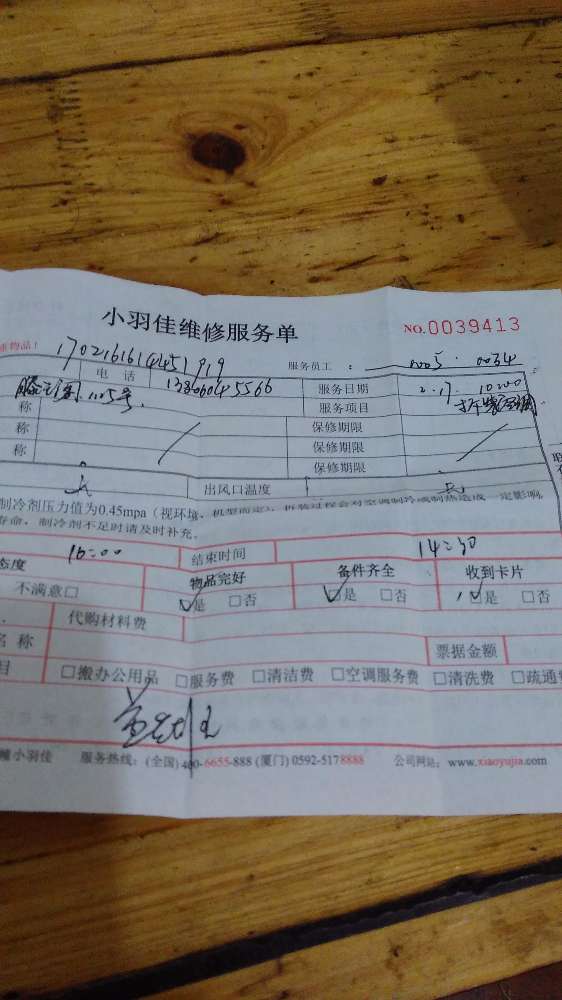 小羽佳维修服务单
NO.0039413
物品！
服务员工：
电话 服务日期 2.17. 10:00
1105号
称 服务项目 拆装空调
称 保修期限
称 保修期限
保修期限
无 出风口温度 无
制冷剂压力值为0.45mpa（视环境、机型而定），拆装过程会对空调制冷或制热造成一定影响
寿命，制冷剂不足时请及时补充。
10:00 结束时间 14:30
态度 物品完好 备件齐全 收到卡片
不满意□ ☑是 □否 ☑是 □否 ☑是 □否
代购材料费
名称 票据金额
目 □搬办公用品 □服务费 □清洁费 □空调服务费 □清洗费 □疏通
小羽佳 服务热线：(全国) 400-6655-888 (厦门) 0592-5178888 公司网站：www.xiaoyujia.com